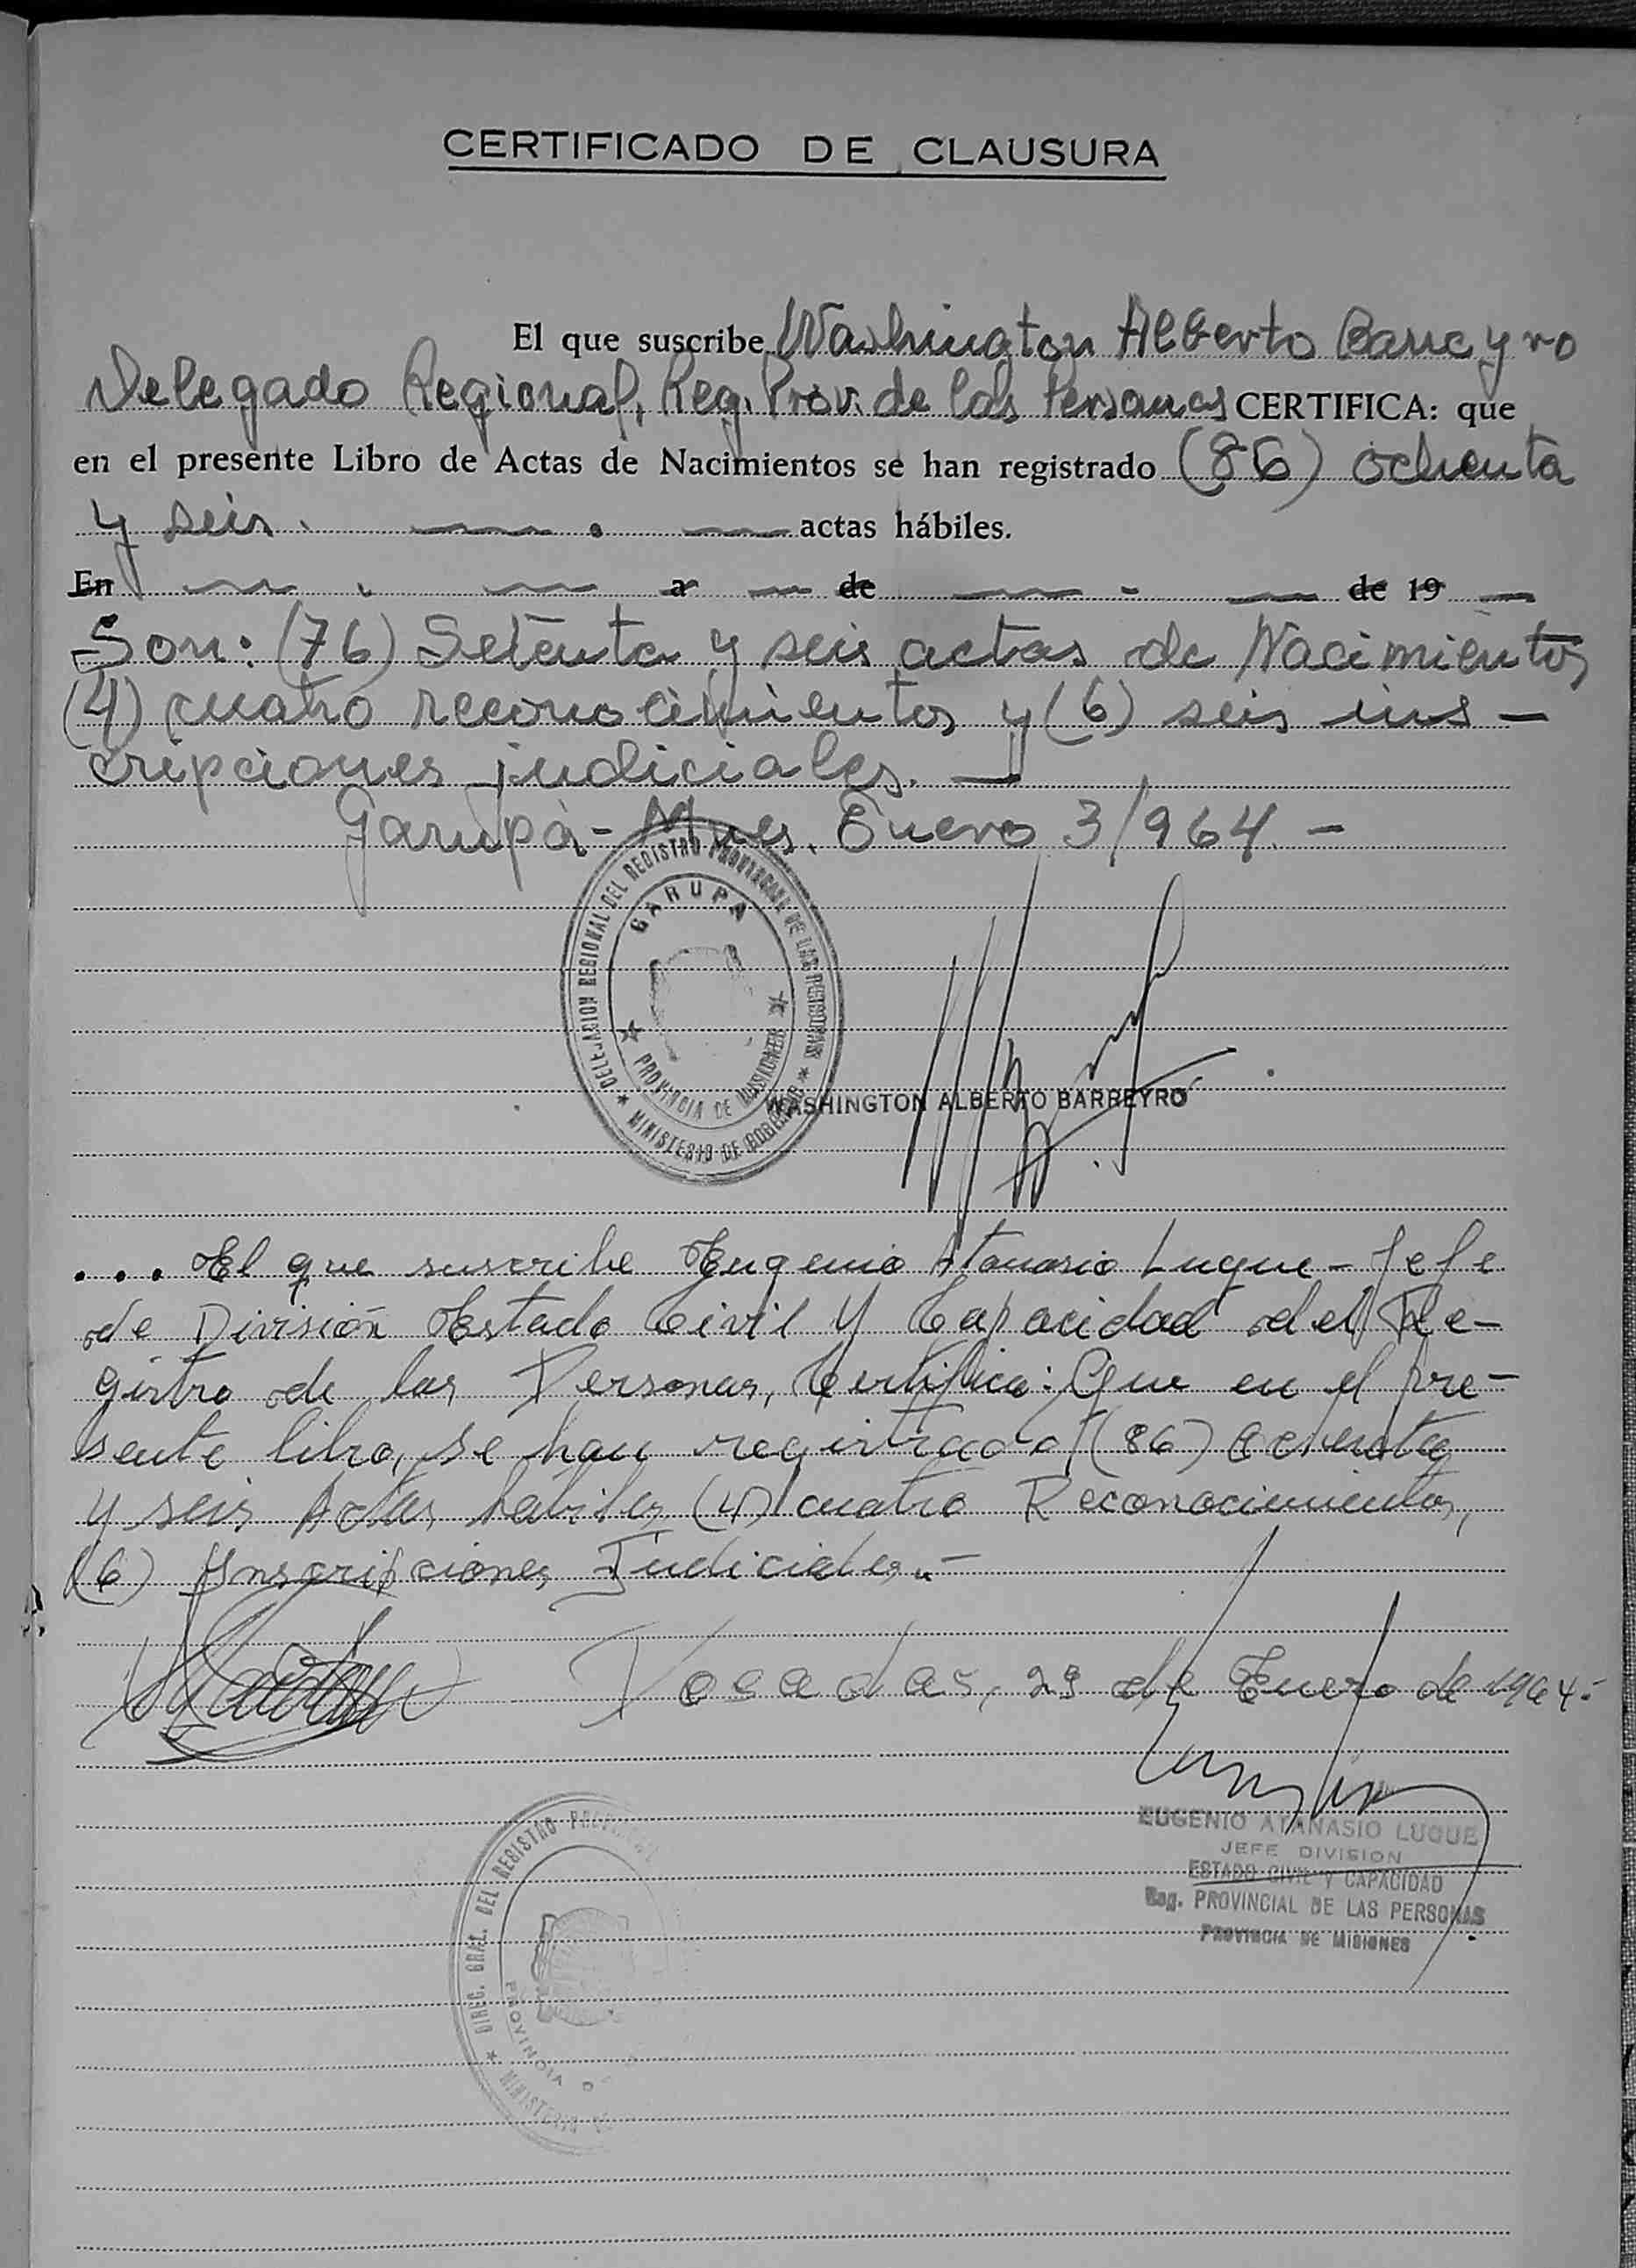 CERTIFICADO DE CLAUSURA
El que suscribe Washington Alberto Barreyro
Delegado Regional, Reg. Prov. de las Personas CERTIFICA: que
en el presente Libro de Actas de Nacimientos se han registrado (86) ochenta
y seis. — . — actas hábiles.
En — . — a — de — - — de 19 —
Son: (76) Setenta y seis actas de Nacimientos
(4) cuatro reconocimientos y (6) seis ins —
cripciones judiciales. —
Garupá - Mnes. Enero 3/964. —
DELEGACION REGIONAL DEL REGISTRO PROVINCIAL DE LAS PERSONAS
GARUPA
PROVINCIA DE MISIONES
★ MINISTERIO DE GOBIERNO ★
WASHINGTON ALBERTO BARREYRO
... El que suscribe Eugenio Atanasio Luque - Jefe
de División Estado Civil y Capacidad del Re-
gistro de las Personas, Certifica: Que en el pre-
sente libro, se han registrado (86) ochenta
y seis Actas habiles, (4) cuatro Reconocimientos,
(6) Inscripciones Judiciales.-
Posadas, 29 de Enero de 1964.-
EUGENIO ATANASIO LUQUE
JEFE DIVISION
ESTADO CIVIL Y CAPACIDAD
Reg. PROVINCIAL DE LAS PERSONAS
PROVINCIA DE MISIONES
DIREC. GRAL. DEL REGISTRO PROVINCIAL
PROVINCIA D
★ MINISTERIO DE